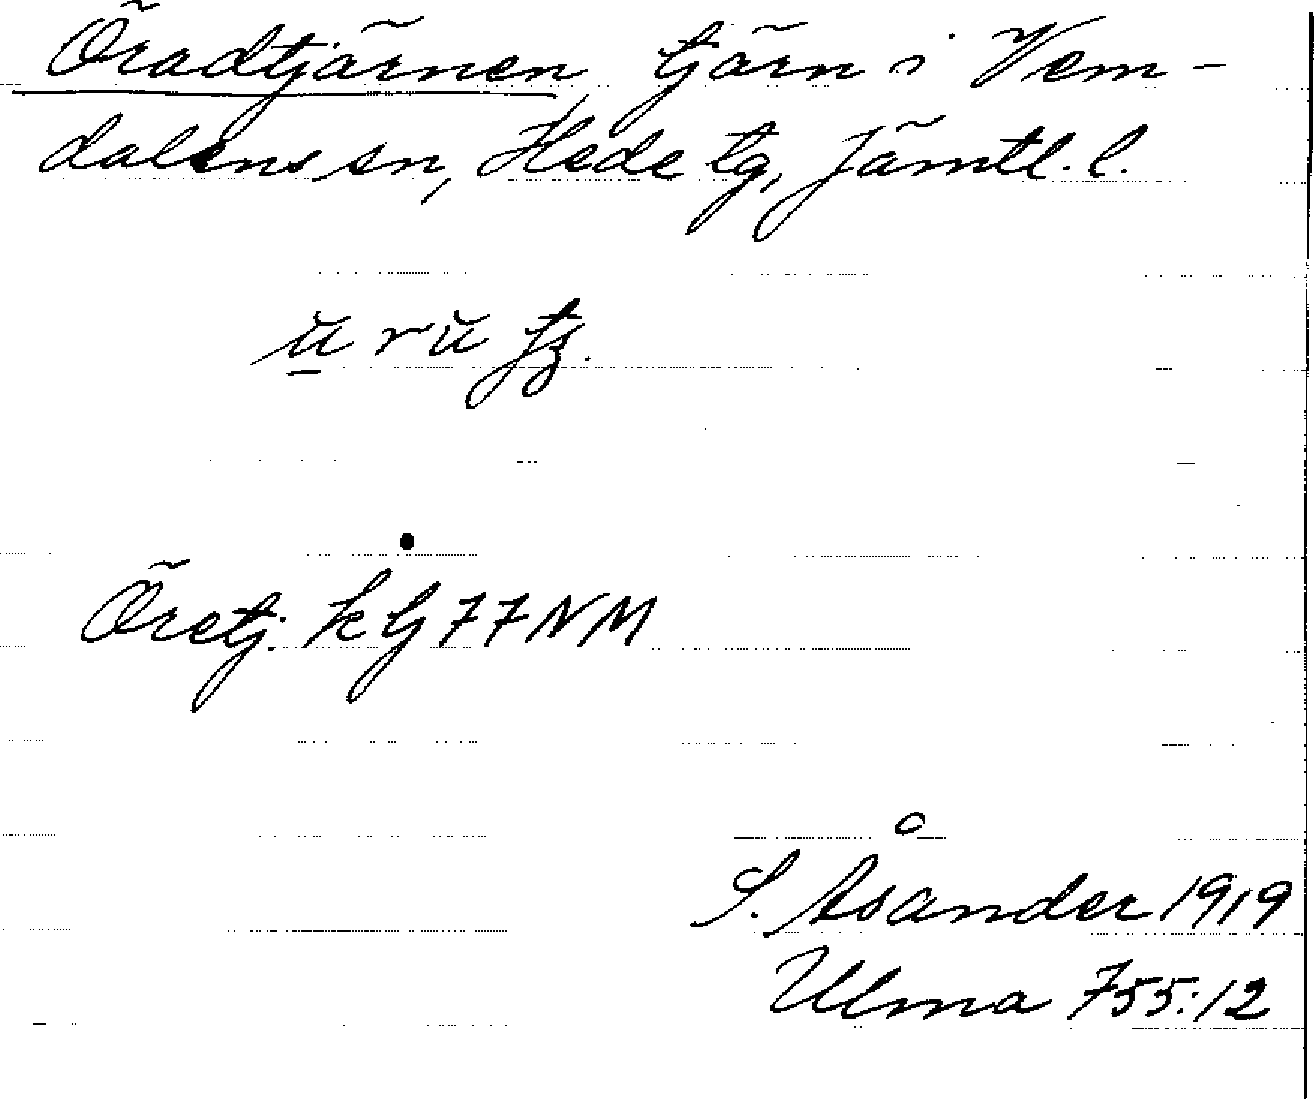 Öradtjärnen, tjärn i Vem-
dalens sn, Hede tg, Jämtl. l.
Öretj. kG77NM
S. Åsander 1919
Ulma 755:12